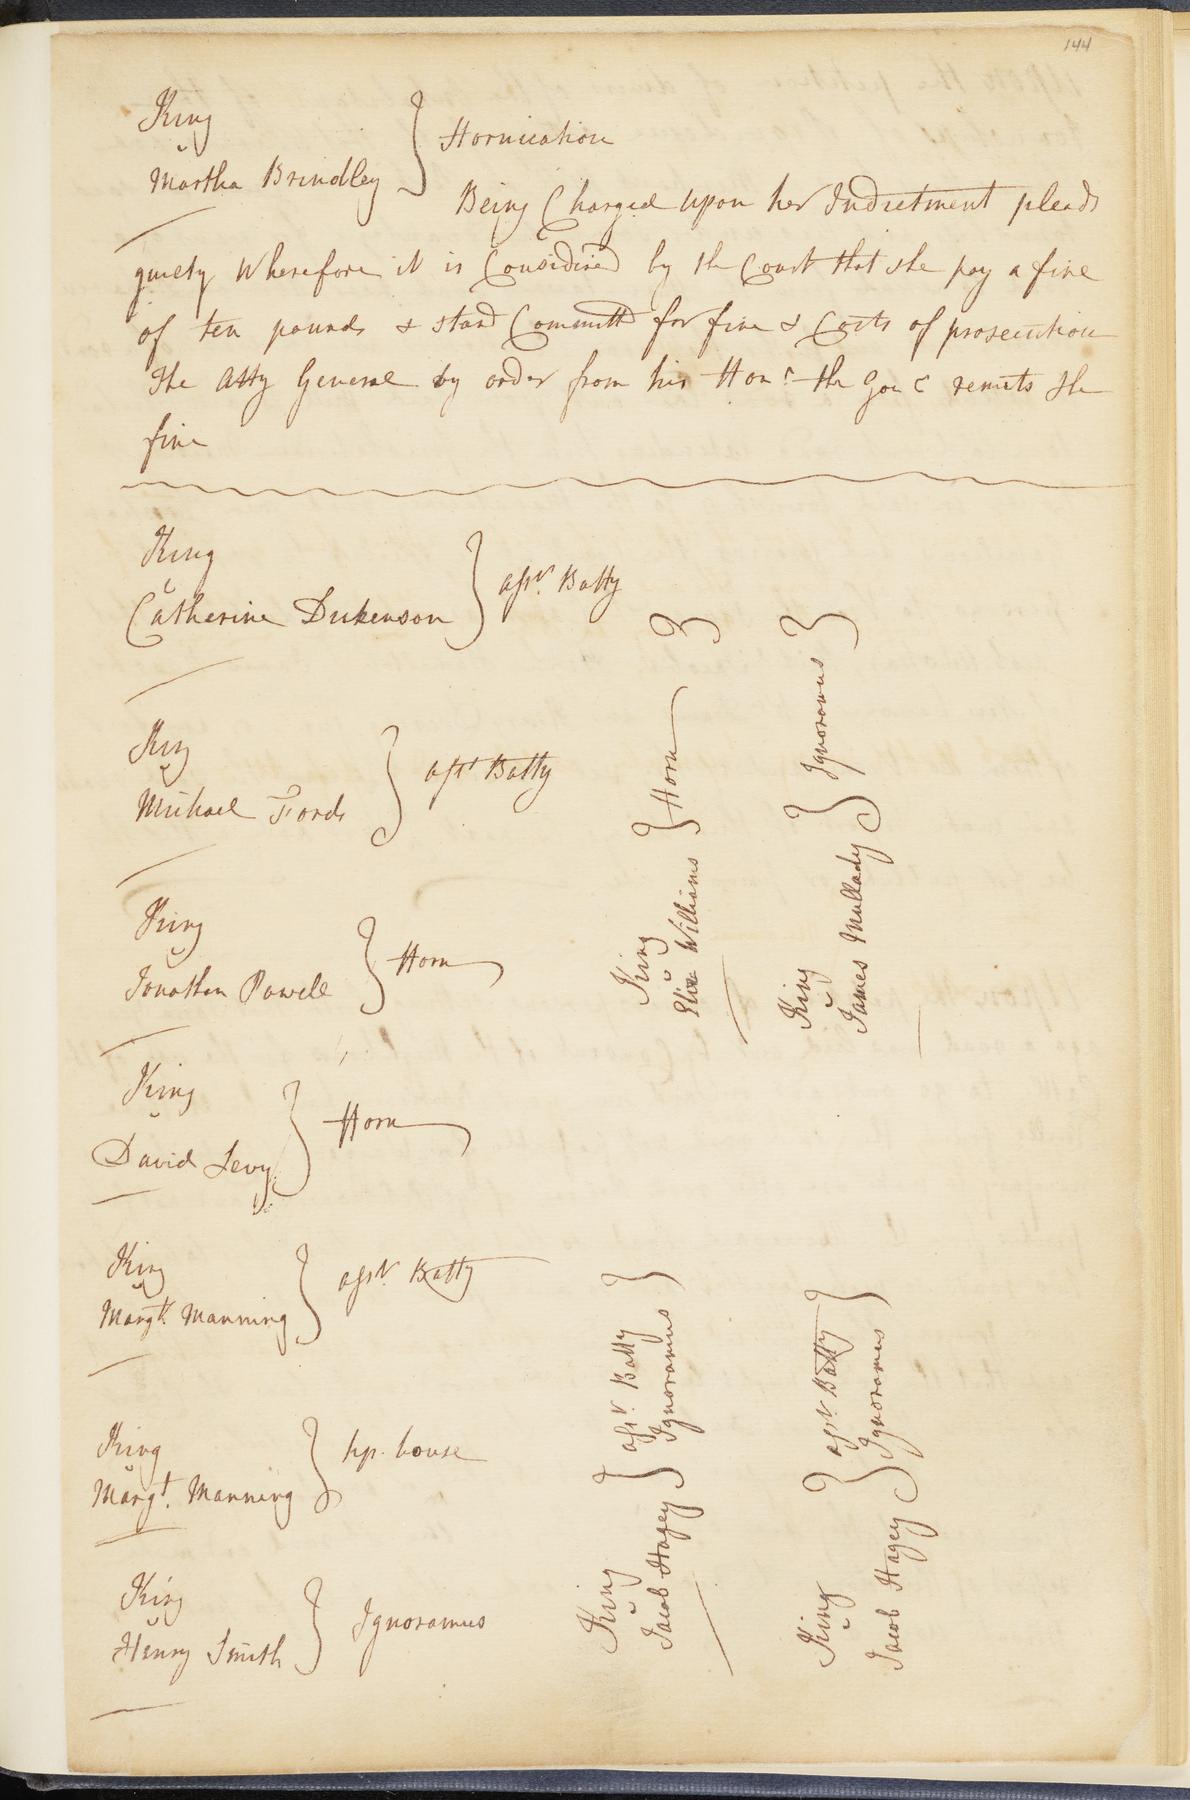 144
King
v
Martha Brindley } ffornication
Being Charged upon her Indictment pleads
guilty Wherefore it is Considered by the Court that she pay a fine
of ten pounds & stand Committd for fine & Costs of prosecution
The Atty General by order from his Honr the Govr remits the
fine
King
v
Catherine Dickenson } asst. Batty
King
v
Michael Fords } asst Batty
King
v
Jonathan Powell } fforn
King
v
David Levy } fforn
King
v
Margt. Manning } asst. Batty
King
v
Margt. Manning } tip. house
King
v
Henry Smith } Ignoramus
King
v
Eliza Williams } fforn
King
v
James Mullady } Ignoramus
King
v
Jacob Hagey } asst. Batty
Ignoramus
King
v
Jacob Hagey } asst. Batty
Ignoramus